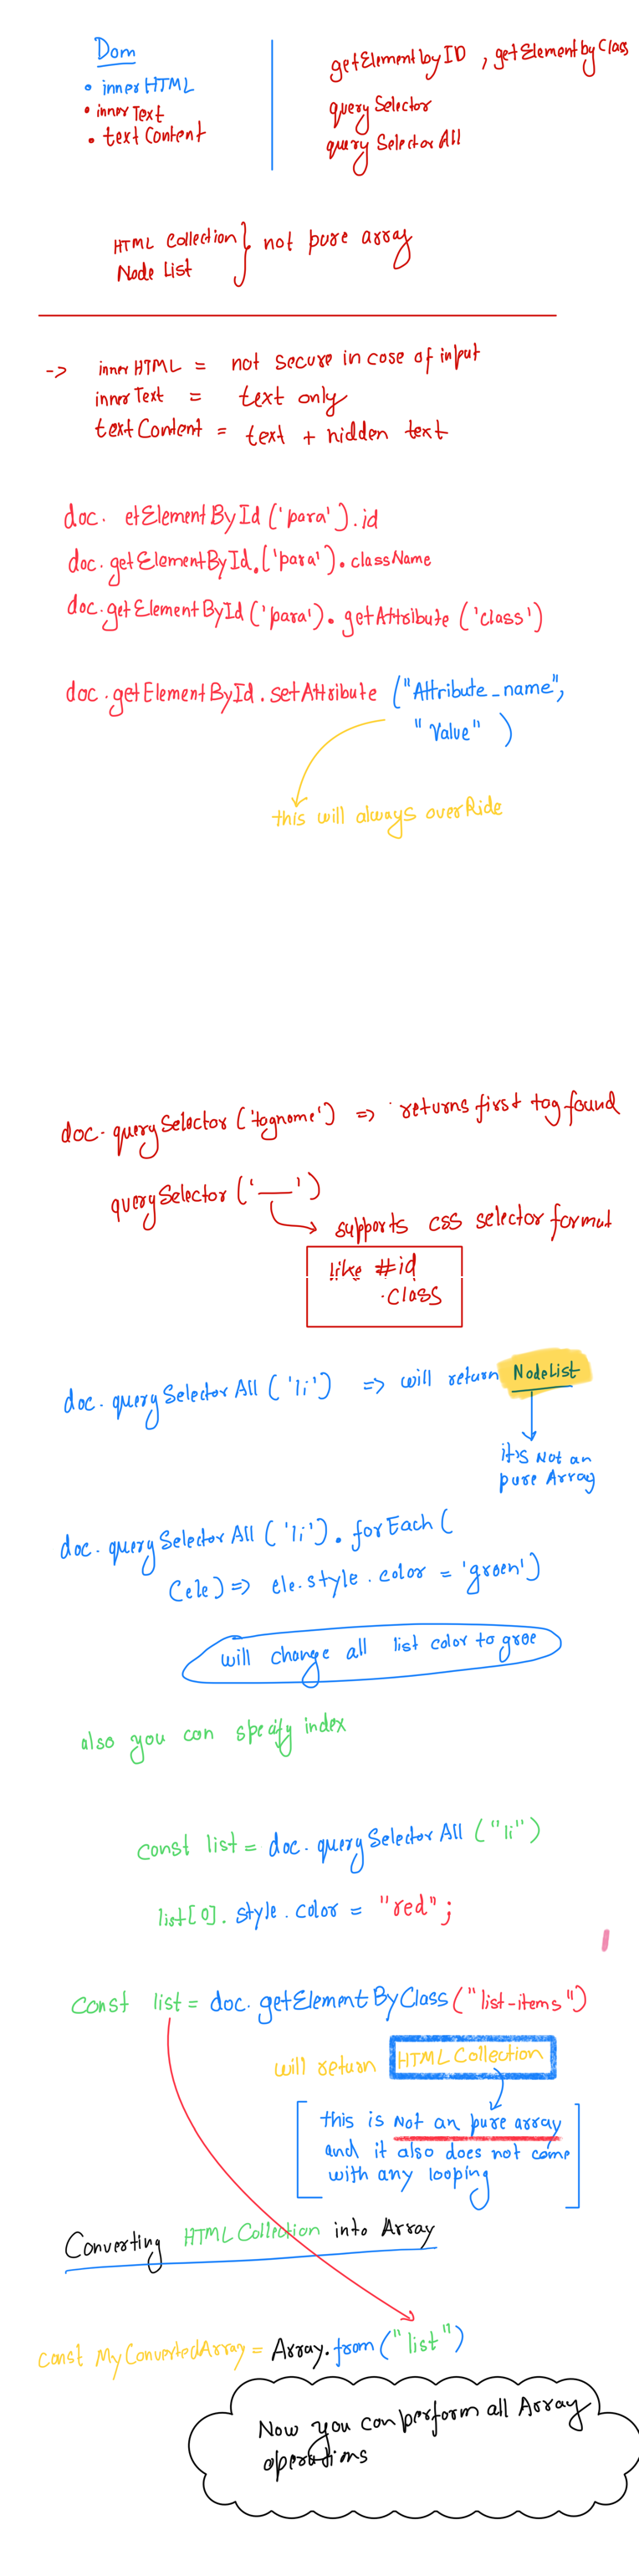 Dom
• innerHTML
• innerText
• textContent
getElementbyID , getElementbyClass
querySelector
querySelectorAll
HTML Collection } not pure array
Node List
-> innerHTML = not secure in case of input
innerText = text only
textContent = text + hidden text
doc. etElementById('para').id
doc.getElementById.('para').className
doc.getElementById('para').getAttribute('class')
doc.getElementById.setAttribute ("Attribute_name",
"Value" )
this will always overRide
doc.querySelector('tagname') => returns first tag found
querySelector('___')
supports css selector format
like #id
.class
doc.querySelectorAll('li') => will return NodeList
it's Not an
pure Array
doc.querySelectorAll('li').forEach(
(ele) => ele.style.color = 'green')
will change all list color to gree
also you can specify index
const list = doc.querySelectorAll ("li")
list[0].style.color = "red";
const list = doc.getElementByClass("list-items")
will return HTMLCollection
this is Not an pure array
and it also does not come
with any looping
Converting HTMLCollection into Array
const MyConvertedArray = Array.from("list")
Now you can perform all Array
operations